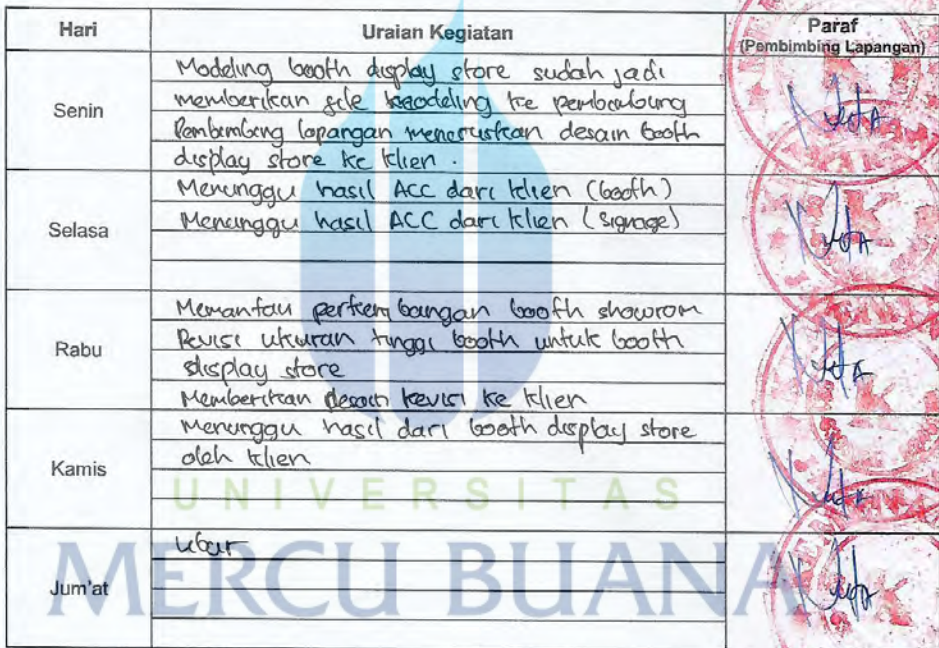 Hari Uraian Kegiatan Paraf
(Pembimbing Lapangan)
Senin
Modeling booth display store sudah jadi
memberikan file modeling ke pembimbing
Pembimbing lapangan meneruskan desain booth
display store ke klien.
Selasa
Menunggu hasil ACC dari klien (booth)
Menunggu hasil ACC dari klien (signage)
Rabu
Memantau perkembangan booth showrom
Revisi ukuran tinggi booth untuk booth
display store
Memberikan desain revisi ke klien
Kamis
Menunggu hasil dari booth display store
oleh klien
UNIVERSITAS
Jum'at
Libur
MERCU BUANA